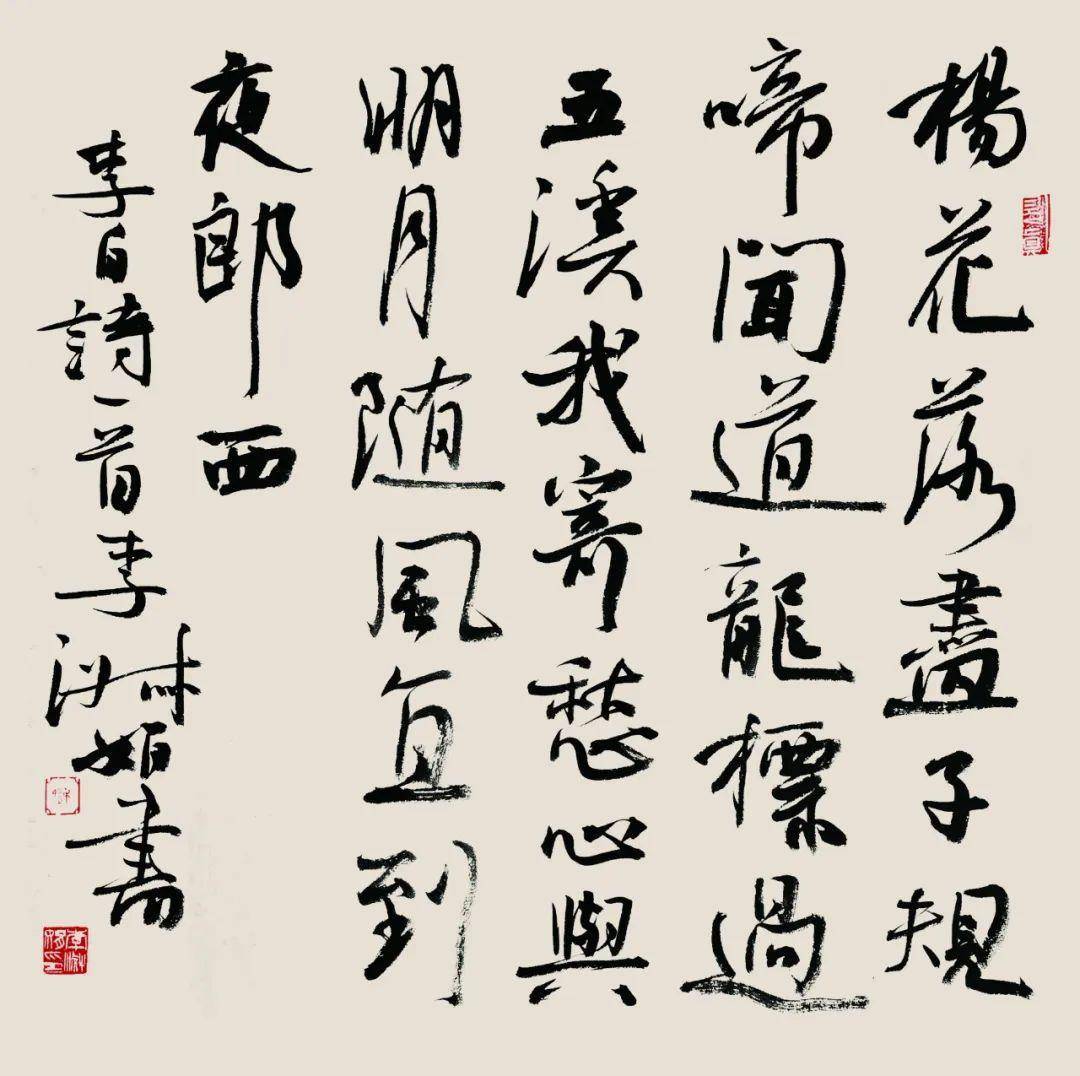 楊花落盡子規
啼聞道龍標過
五溪我寄愁心與
明月随風直到
夜郎西
李白詩一首李淑書